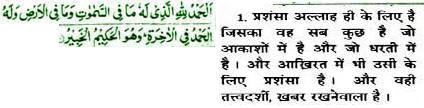 اَلْحَمْدُ لِلّٰهِ الَّذِیْ لَهٗ مَا فِی السَّمٰوٰتِ وَمَا فِی الْاَرْضِ وَلَهُ
الْحَمْدُ فِی الْاٰخِرَةِ ؕ وَهُوَ الْحَكِیْمُ الْخَبِیْرُ
1. प्रशंसा अल्लाह ही के लिए है
जिसका वह सब कुछ है जो
आकाशों में है और जो धरती में
है। और आख़िरत में भी उसी के
लिए प्रशंसा है। और वही
तत्त्वदर्शी, ख़बर रखनेवाला है।